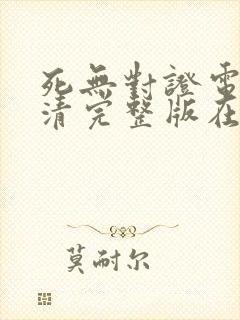 死無對證電
清完整版在
莫耐尔